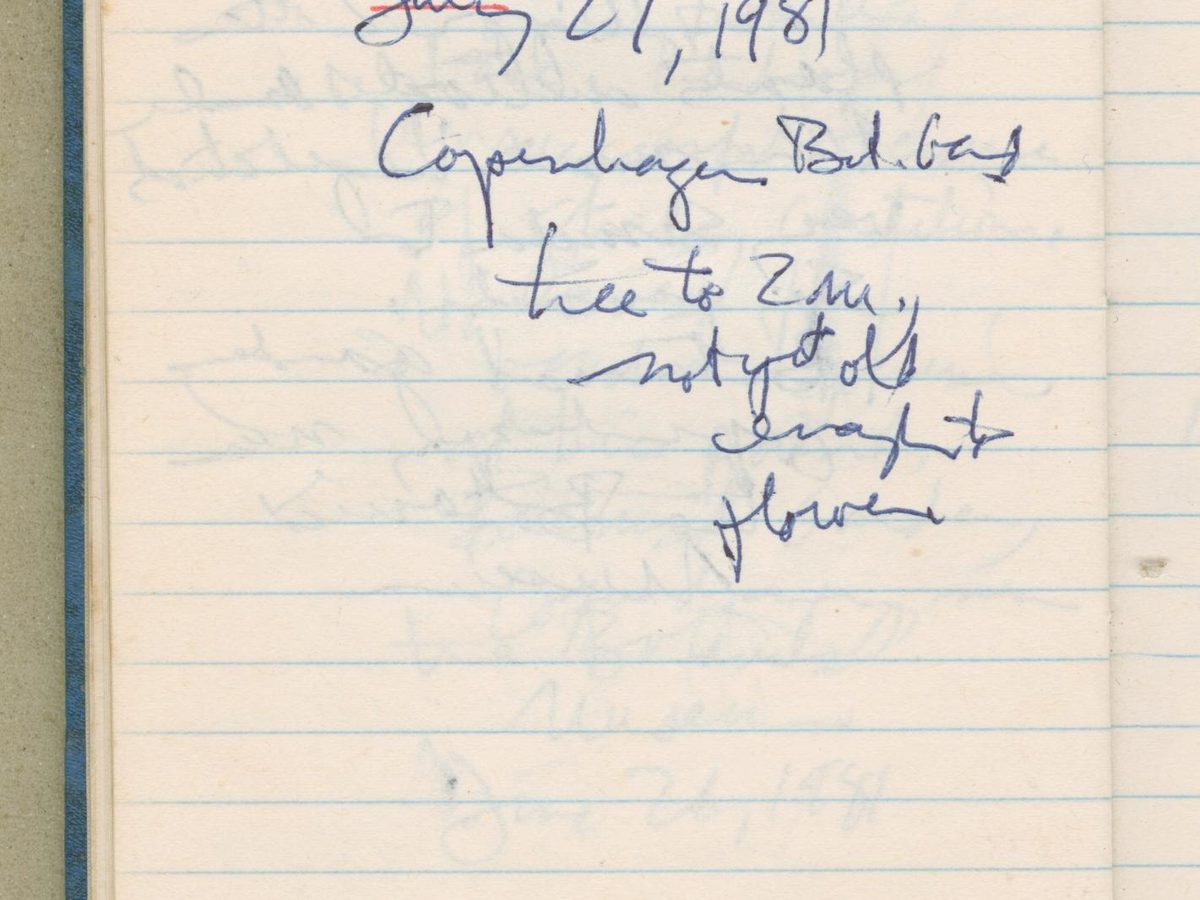 July 21, 1981
Copenhagen Bot. Gard
tree to 2 m.,
not yet old
enough to
flower